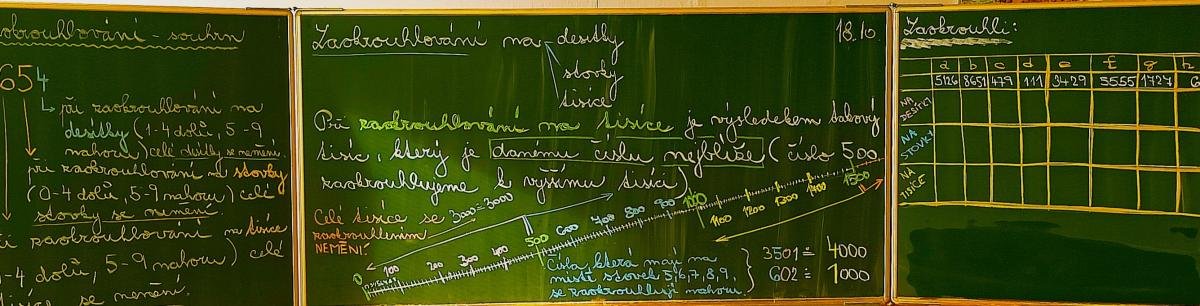 okrouhlování - souhrn
654
při zaokrouhlování na
desítky (1-4 dolů, 5-9
nahoru) celé desítky se nemění.
při zaokrouhlování na stovky
(0-4 dolů, 5-9 nahoru) celé
stovky se nemění.
zaokrouhlování na tisíce
-4 dolů, 5-9 nahoru) celé
se nemění.
Zaokrouhlování na desítky
stovky
tisíce
18.10.
Při zaokrouhlování na tisíce je výsledekem takový
tisíc, který je danému číslu nejblíže (číslo 500
zaokrouhlujeme k vyššímu tisíci)
Celé tisíce se
zaokrouhlením
NEMĚNÍ!
3000≐3000
0 100 200 300 400 500 600 700 800 900 1000 1100 1200 1300 1400 1500
Čísla, která mají na
místě stovek 5,6,7,8,9,
se zaokrouhlují nahoru.
3501 ≐ 4000
602 ≐ 1000
Zaokrouhli:
a b c d e f g h
5126 8651 479 111 3429 5555 1727 6
NA DESÍTKY
NA STOVKY
NA TISÍCE